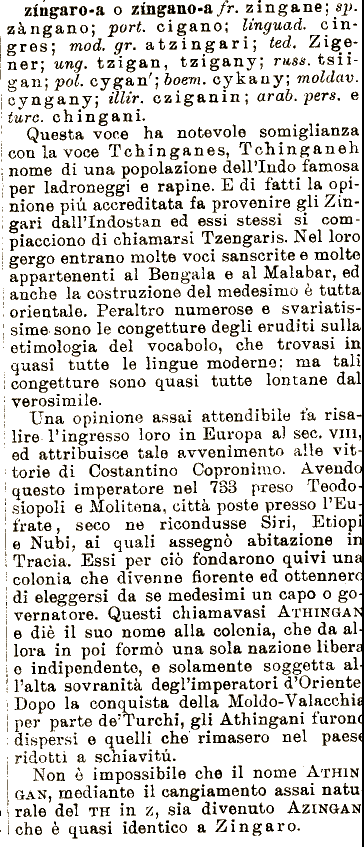 zíngaro-a o zíngano-a fr. zingane; sp.
zàngano; port. cigano; linguad. cin-
gres; mod. gr. atzingari; ted. Zige-
ner; ung. tzigan, tzigany; russ. tsii-
gan; pol. cygan'; boem. cykany; moldav.
cyngany; illir. cziganin; arab. pers. e
turc. chingani.
Questa voce ha notevole somiglianza
con la voce Tchinganes, Tchinganeh
nome di una popolazione dell'Indo famosa
per ladroneggi e rapine. E di fatti la opi-
nione piú accreditata fa provenire gli Zin-
gari dall'Indostan ed essi stessi si com-
piacciono di chiamarsi Tzengaris. Nel loro
gergo entrano molte voci sanscrite e molte
appartenenti al Bengala e al Malabar, ed
anche la costruzione del medesimo è tutta
orientale. Peraltro numerose e svariatis-
sime sono le congetture degli eruditi sulla
etimologia del vocabolo, che trovasi in
quasi tutte le lingue moderne: ma tali
congetture sono quasi tutte lontane dal
verosimile.
Una opinione assai attendibile fa risa-
lire l'ingresso loro in Europa al sec. VIII,
ed attribuisce tale avvenimento alle vit-
torie di Costantino Copronimo. Avendo
questo imperatore nel 733 preso Teodo-
siopoli e Molitena, città poste presso l'Eu-
frate, seco ne ricondusse Siri, Etiopi
e Nubi, ai quali assegnò abitazione in
Tracia. Essi per ciò fondarono quivi una
colonia che divenne fiorente ed ottennero
di eleggersi da se medesimi un capo o go-
vernatore. Questi chiamavasi ATHINGAN
e diè il suo nome alla colonia, che da al-
lora in poi formò una sola nazione libera
e indipendente, e solamente soggetta al-
l'alta sovranità degl'imperatori d'Oriente
Dopo la conquista della Moldo-Valacchia
per parte de'Turchi, gli Athingani furono
dispersi e quelli che rimasero nel paese
ridotti a schiavitú.
Non è impossibile che il nome ATHIN
GAN, mediante il cangiamento assai natu
rale del TH in Z, sia divenuto AZINGAN
che è quasi identico a Zingaro.